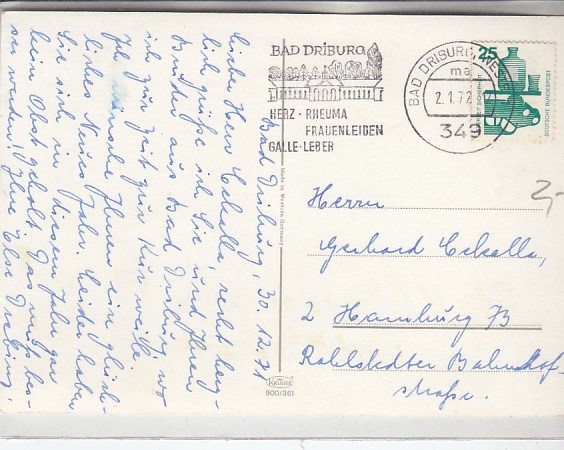 Bad Driburg, 30.12.71
Lieber Herr Cekalla, recht herz-
lich grüße ich Sie und Ihren
Bruder aus Bad Driburg, wo
ich zur Zeit zur Kur weile
Ich wünsche Ihnen ein glück-
liches Neues Jahr. Leider haben
Sie sich in diesem Jahr gar
kein Obst geholt. Das muß bes-
ser werden! Ihre Else
BAD DRIBURG
HERZ - RHEUMA
FRAUENLEIDEN
GALLE - LEBER
BAD DRIBURG, WESTF
ma
2.1.72
349
25
DEUTSCHE BUNDESPOST
Made in Western Germany
Herrn
Gerhard Cekalla,
2 Hamburg 73
Rahlstedter Bahnhof-
straße.
Krüger
900/361